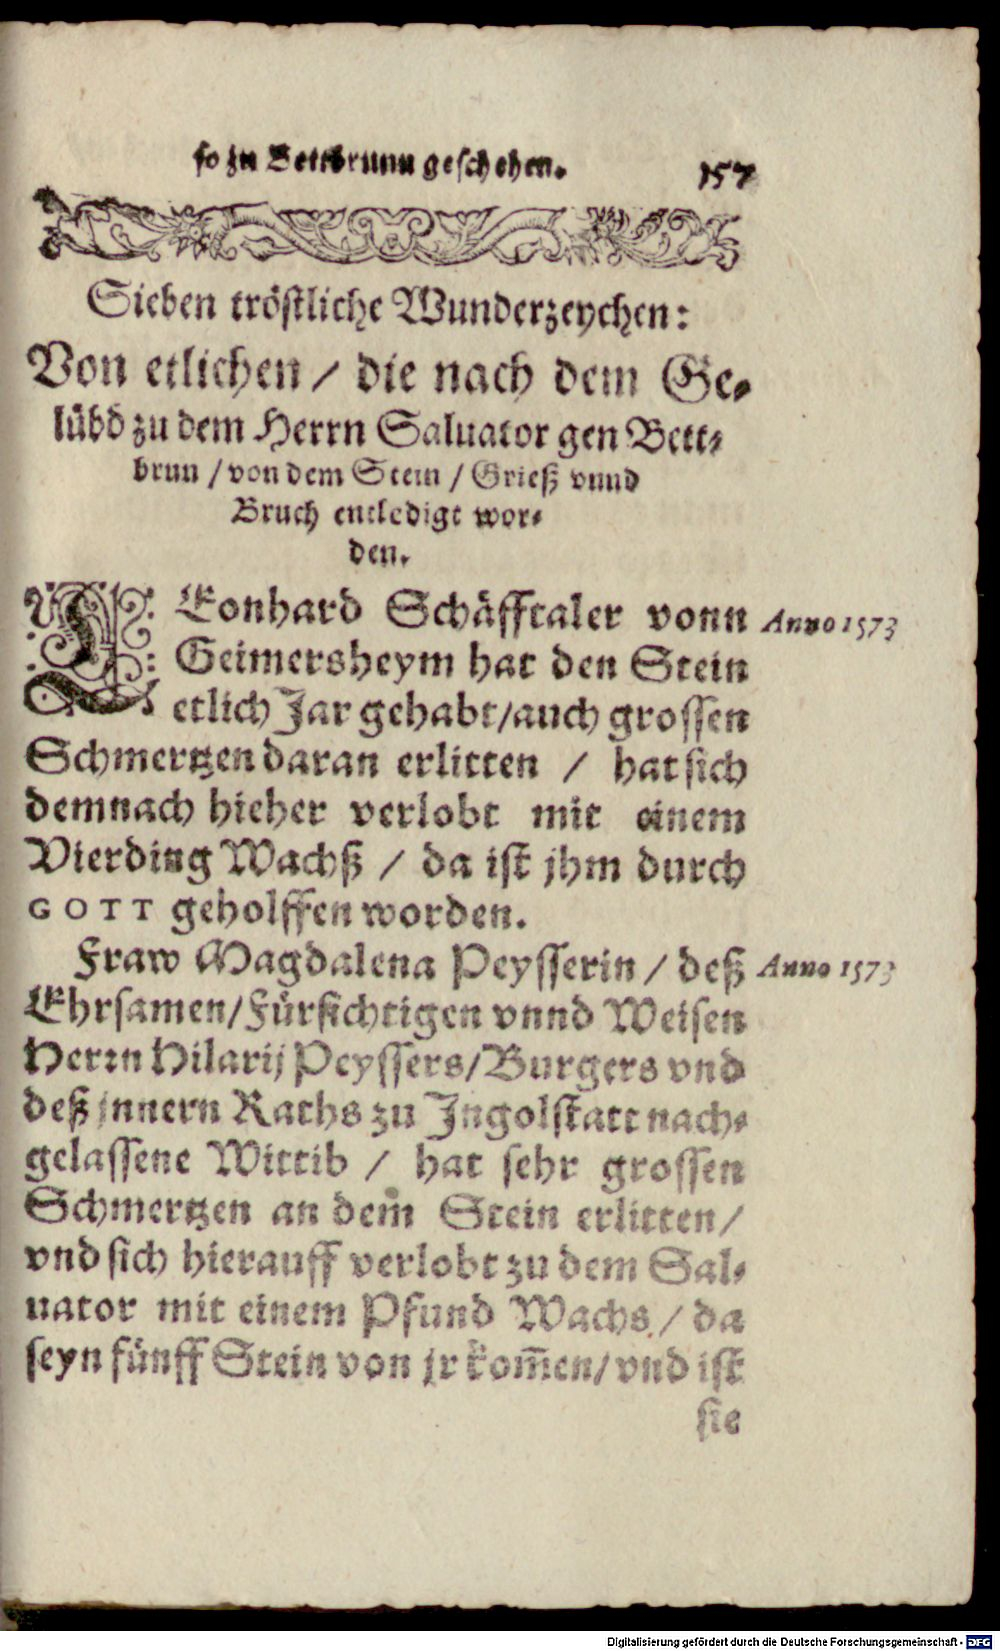 so zu Bettbrunn geschehen. 157
Sieben tröstliche Wunderzeychen:
Von etlichen / die nach dem Ge-
lübd zu dem Herrn Saluator gen Bett-
brun / von dem Stein / Grieß vnnd
Bruch entledigt wor-
den.
LEonhard Schäfftaler vonn
Anno 1573
Geimersheym hat den Stein
etlich Jar gehabt/auch grossen
Schmertzen daran erlitten / hat sich
demnach hieher verlobt mit einem
Vierding Wachß / da ist jhm durch
GOTT geholffen worden.
Fraw Magdalena Peysserin / deß
Anno 1573
Ehrsamen/Fürsichtigen vnnd Weisen
Herrn Hilarij Peyssers/Burgers vnd
deß jnnern Raths zu Jngolstatt nach-
gelassene Wittib / hat sehr grossen
Schmertzen an dem Stein erlitten/
vnd sich hierauff verlobt zu dem Sal-
uator mit einem Pfund Wachs / da
seyn fünff Stein von jr kom̃en/vnd ist
sie
Digitalisierung gefördert durch die Deutsche Forschungsgemeinschaft - DFG